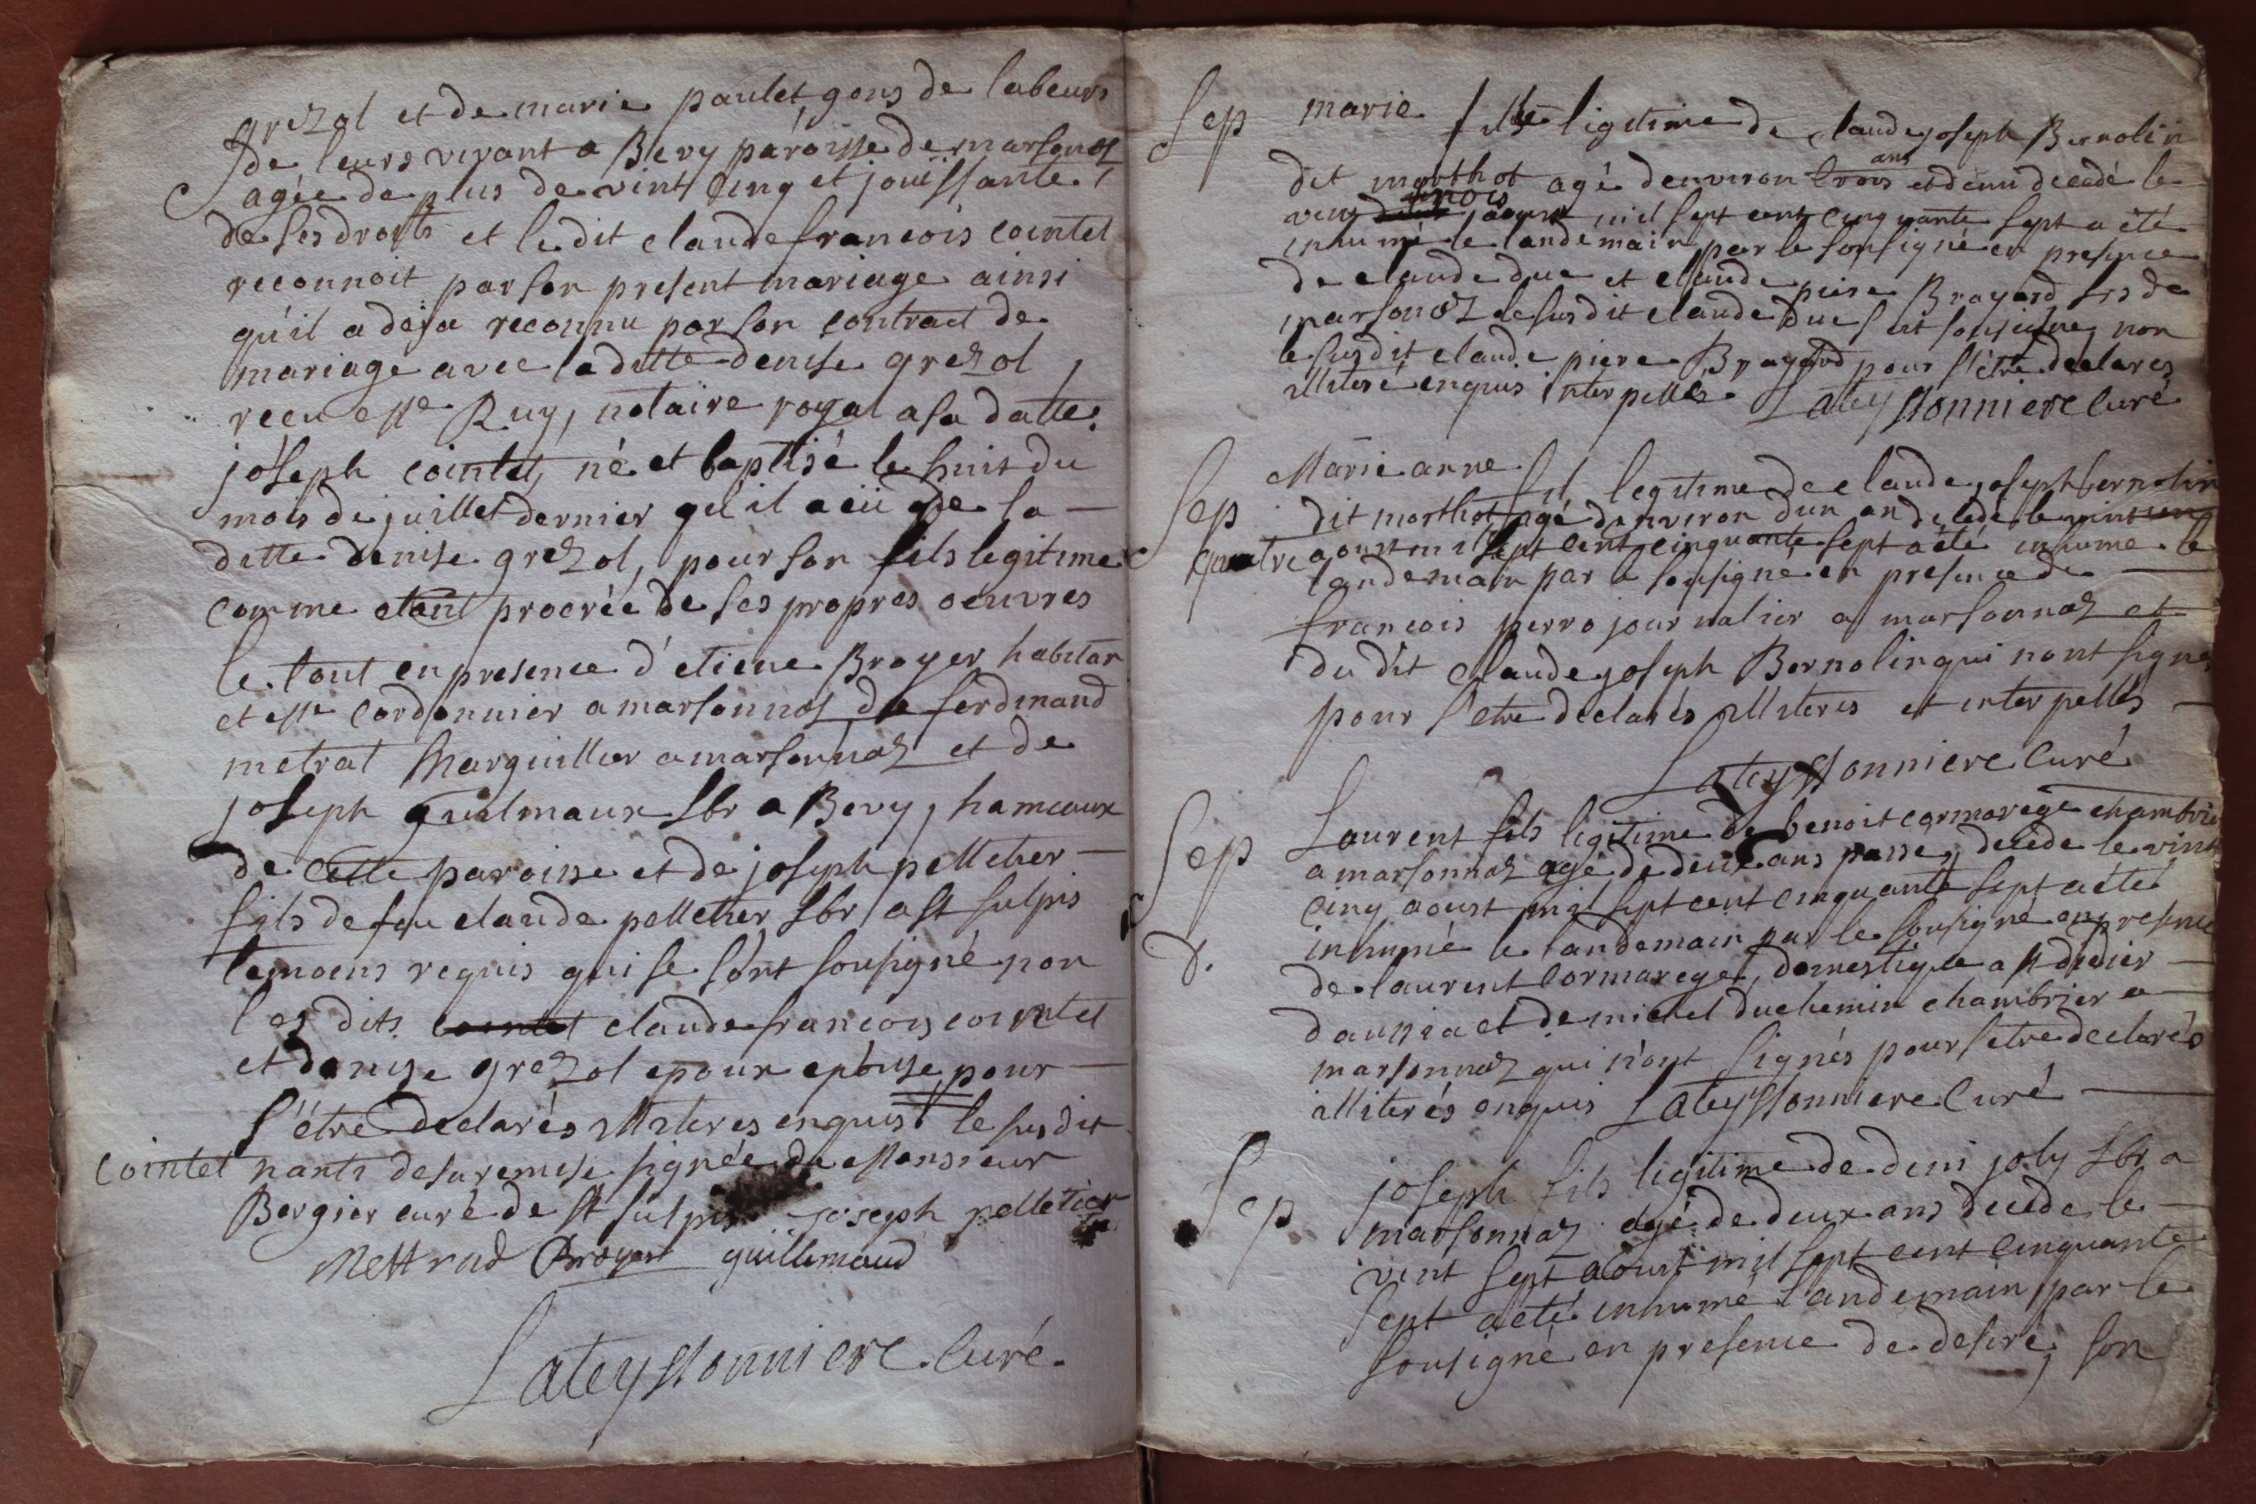 grezol et de marie paulet gens de labeurs
de leurs vivant a Bevy paroisse de marsonas
agée de plus de vint cinq et jouissante
de ses droits et le dit claude francois cointet
reconnoit par son present mariage ainsi
qu'il a deja reconnu par son contract de
mariage avec la ditte denise grezol
recu Me Ruy, notaire royal a sa datte.
joseph cointet, né et baptisé le huit du
mois de juillet dernier qu'il a eü de la
ditte denise grezol, pour son fils legitime
comme etant procrée de ses propres oeuvres
le tout en presence d'etiene Broyer habitan
et Me cordonnier a marsonnas de ferdinand
metrat Marguillier a marsonnaz et de
joseph guilmaux Lbr a Bevy, hameaux
de cette paroisse et de joseph pelletier
fils de feu claude pelletier Lbr a St sulpis
temoens requis qui se sont sousigné non
les dits cointet claude francois cointet
et denise grezol epoux epouse pour
s'être declarés illiteres enquis le susdit
cointet nanti de sa remise signée de Monsieur
Bergier curé de St sulpis joseph pelletier
Mettrad Broyer guillemaud
Lateyssonniere Curé.
Sep marie fille legitime de claude joseph Bernolin
dit morthot agé denviron trois ans et demi decedé le
vint trois aoust mil sept cent cinquante sept a été
inhumé le landemain par le sousigné en presence
de claude duc et claude piere Brayard de
marsonaz le susdit claude Duc s'est sousigné non
le susdit claude piere Brayard pour s'être declares
illiteré enquis interpellés. Lateyssonniere Curé
Sep Marie anne fil legitime de claude joseph bernolin
dit morthot agé denviron d'un an decede le vint
quatre aoust mil sept cent cinquante sept a été inhume le
landemain par le sousigne en presence de
francois perro journalier a marsonnaz et
du dit Claude joseph Bernolin qui nont signes
pour s'etre declarés illiteres et interpellés
Lateyssonniere Curé
Sep Laurent fils legitime de benoit cormorege chambrier
a marsonnaz agé de deux ans passe, decede le vint
cinq aoust mil sept cent cinquante sept a été
inhumé le landemain par le sousigné en presence
de laurent cormarege, domestique a St didier
d'aussia et de michel duchemin chambrier a
marsonnaz qui n'ont signés pour s'etre declarés
illiterés enquis Lateyssonniere Curé
Sep joseph fils legitime de deni joly Lbr a
marsonnaz agé de deux ans decede le
vint sept aoust mil sept cent cinquante
sept a eté inhumé landemain par le
sousigné en presence de desire, son